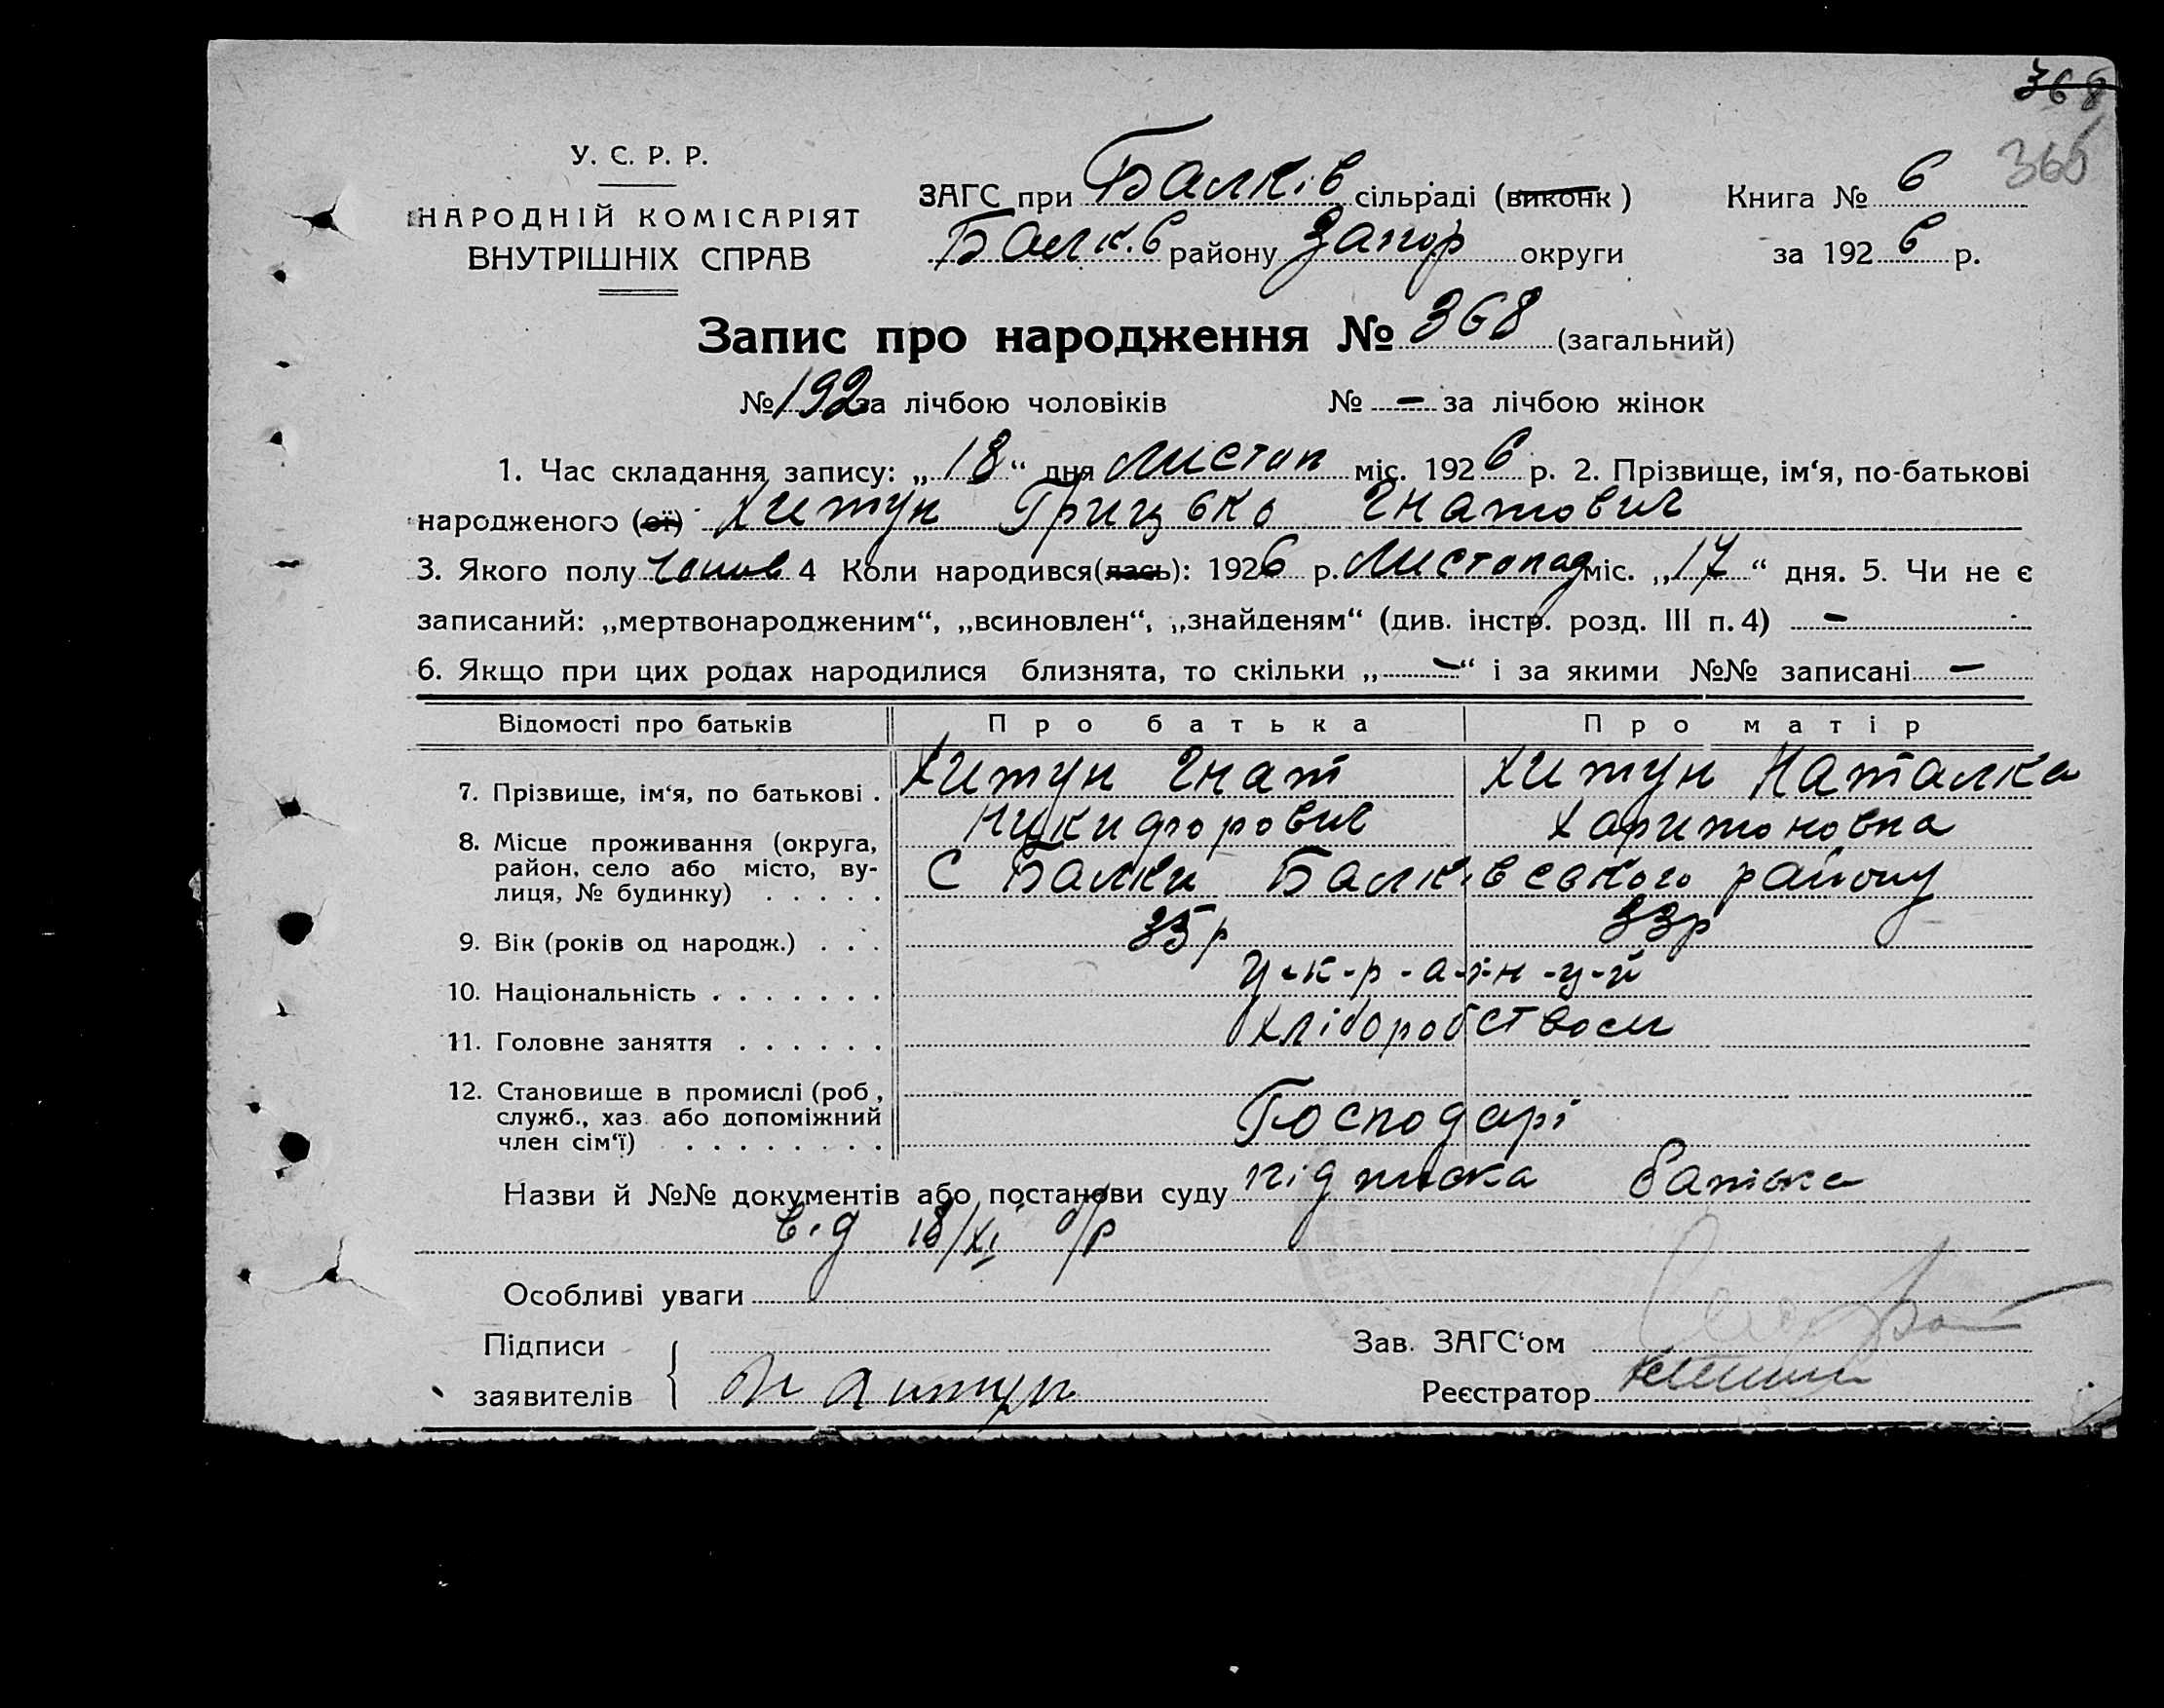 368
365
У. С. Р. Р.
НАРОДНІЙ КОМІСАРІЯТ
ВНУТРІШНІХ СПРАВ
ЗАГС при Балків сільраді (виконк) Книга № 6
Балків району Запор округи за 1926 р.
Запис про народження № 368 (загальний)
№ 192 за лічбою чоловіків № – за лічбою жінок
1. Час складання запису: „18“ дня Листоп міс. 1926 р. 2. Прізвище, ім‘я, по-батькові
народженого (ої) Хитун Грицько Гнатович
3. Якого полу чолов 4 Коли народився(лась): 1926 р. Листопад міс. „17“ дня. 5. Чи не є
записаний: „мертвонародженим“, „всиновлен“, „знайденям“ (див. інстр. розд. III п. 4) –
6. Якщо при цих родах народилися близнята, то скільки „–“ і за якими №№ записані –
Відомості про батьків Про батька Про матір
7. Прізвище, ім‘я, по батькові . Хитун Гнат Хитун Наталка
Никифорович Харитоновна
8. Місце проживання (округа, район, село або місто, вулиця, № будинку) . . . . . С Балки Балківського району
9. Вік (років од народж.) . . . 35р 33р
10. Національність . . . . . . . у-к-р-а-ї-н-ц-й
11. Головне заняття . . . . . . хліборобством
12. Становище в промислі (роб,
служб., хаз. або допоміжний
член сім‘ї) . . . . . . . . Господарі
Назви й №№ документів або постанови суду підписка батька
від 18/XI б/р
Особливі уваги
Підписи Зав. ЗАГС‘ом
заявителів Реєстратор